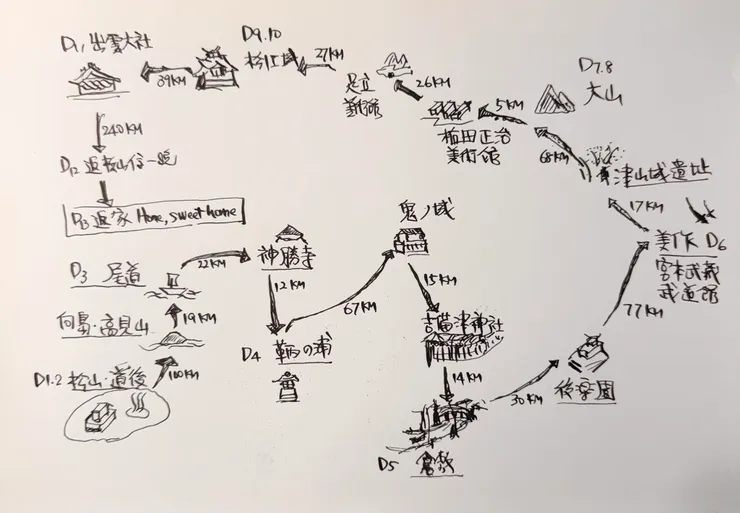 D11 出雲大社
39KM
D9.10
松江城
27KM
足立
美術館
26KM
植田正治
美術館
5KM
D7.8
大山
68KM
津山城遺址
17KM
美作 D6
宮本武蔵
武道館
77KM
後楽園
30KM
D5 倉敷
14KM
吉備津神社
15KM
鬼ノ城
67KM
D4 鞆の浦
12KM
神勝寺
22KM
D3 尾道
19KM
向島・高見山
100KM
D1.2 松山・道後
240KM
D12 返松山住一晚
D13 返家 Home, sweet home